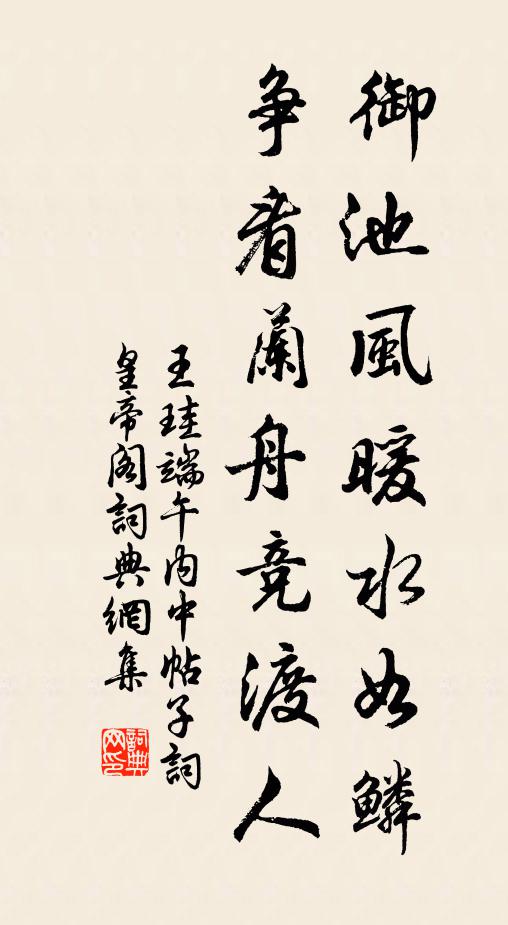 御池風暖水如鱗
争看蘭舟競渡人
王珪端午内中帖子詞
皇帝阁詞典網集
詞典网印